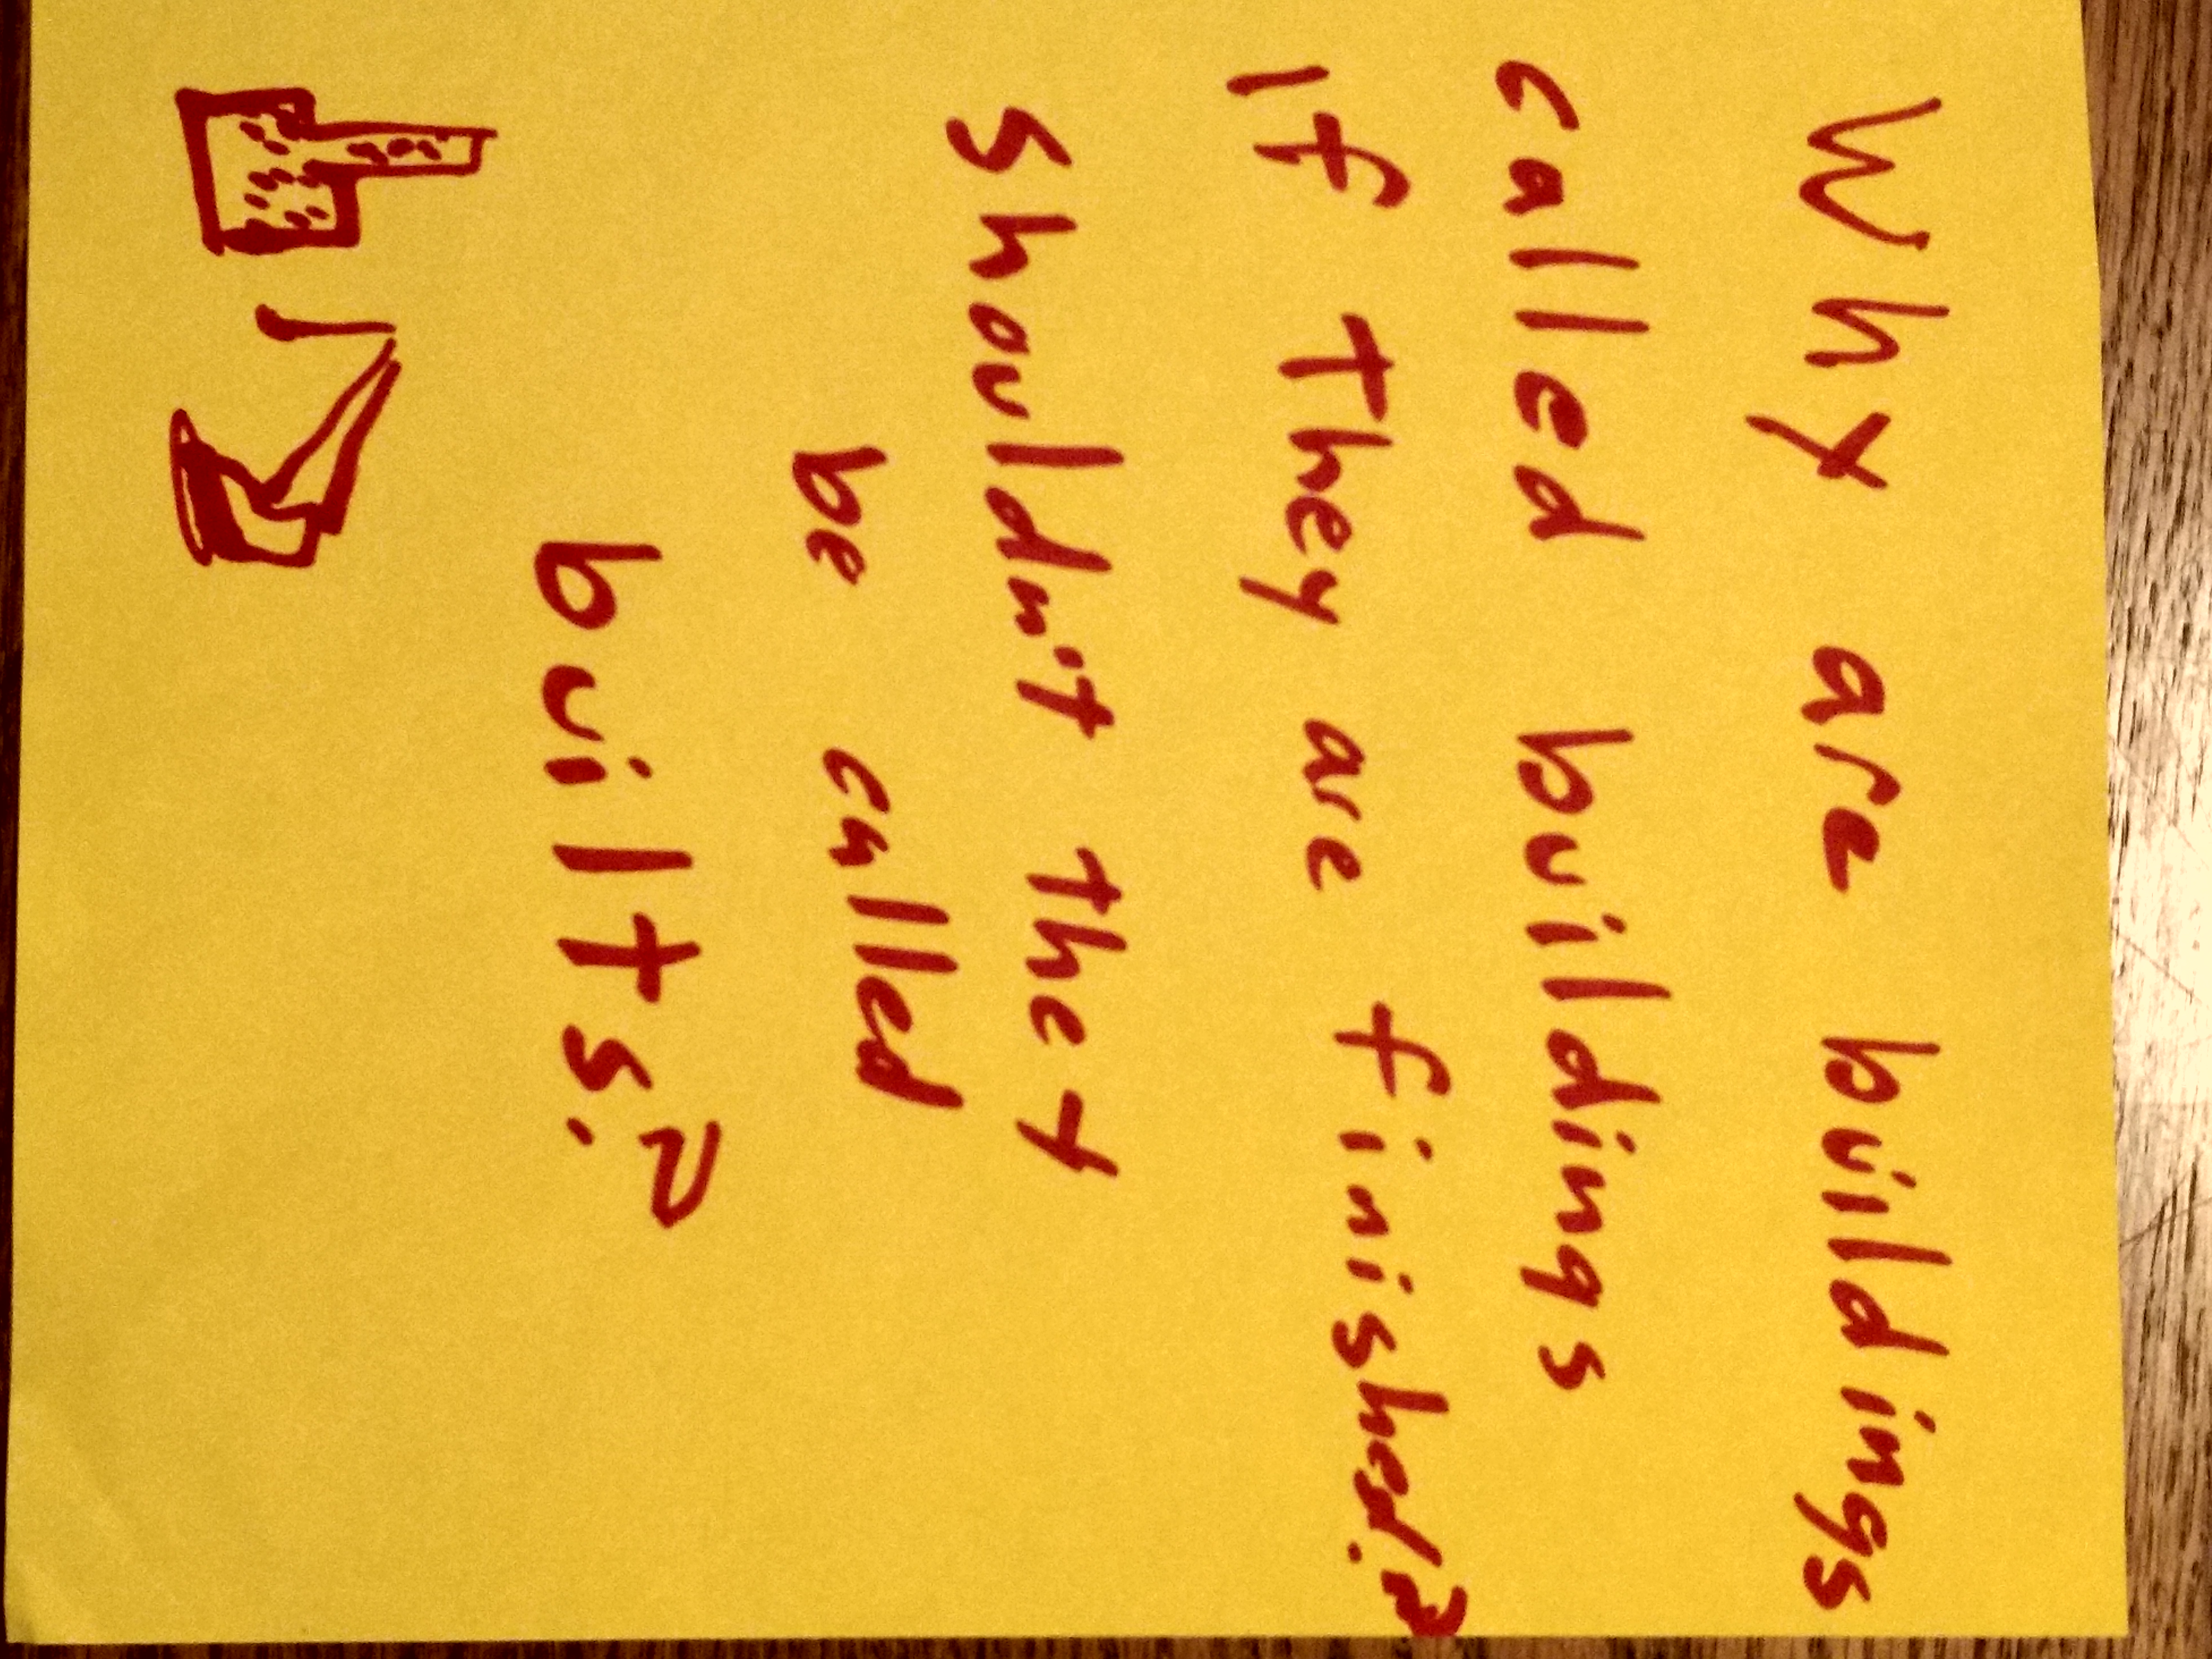 Why are buildings
called buildings
If They are finished?
Shouldn't they
be called
builts?